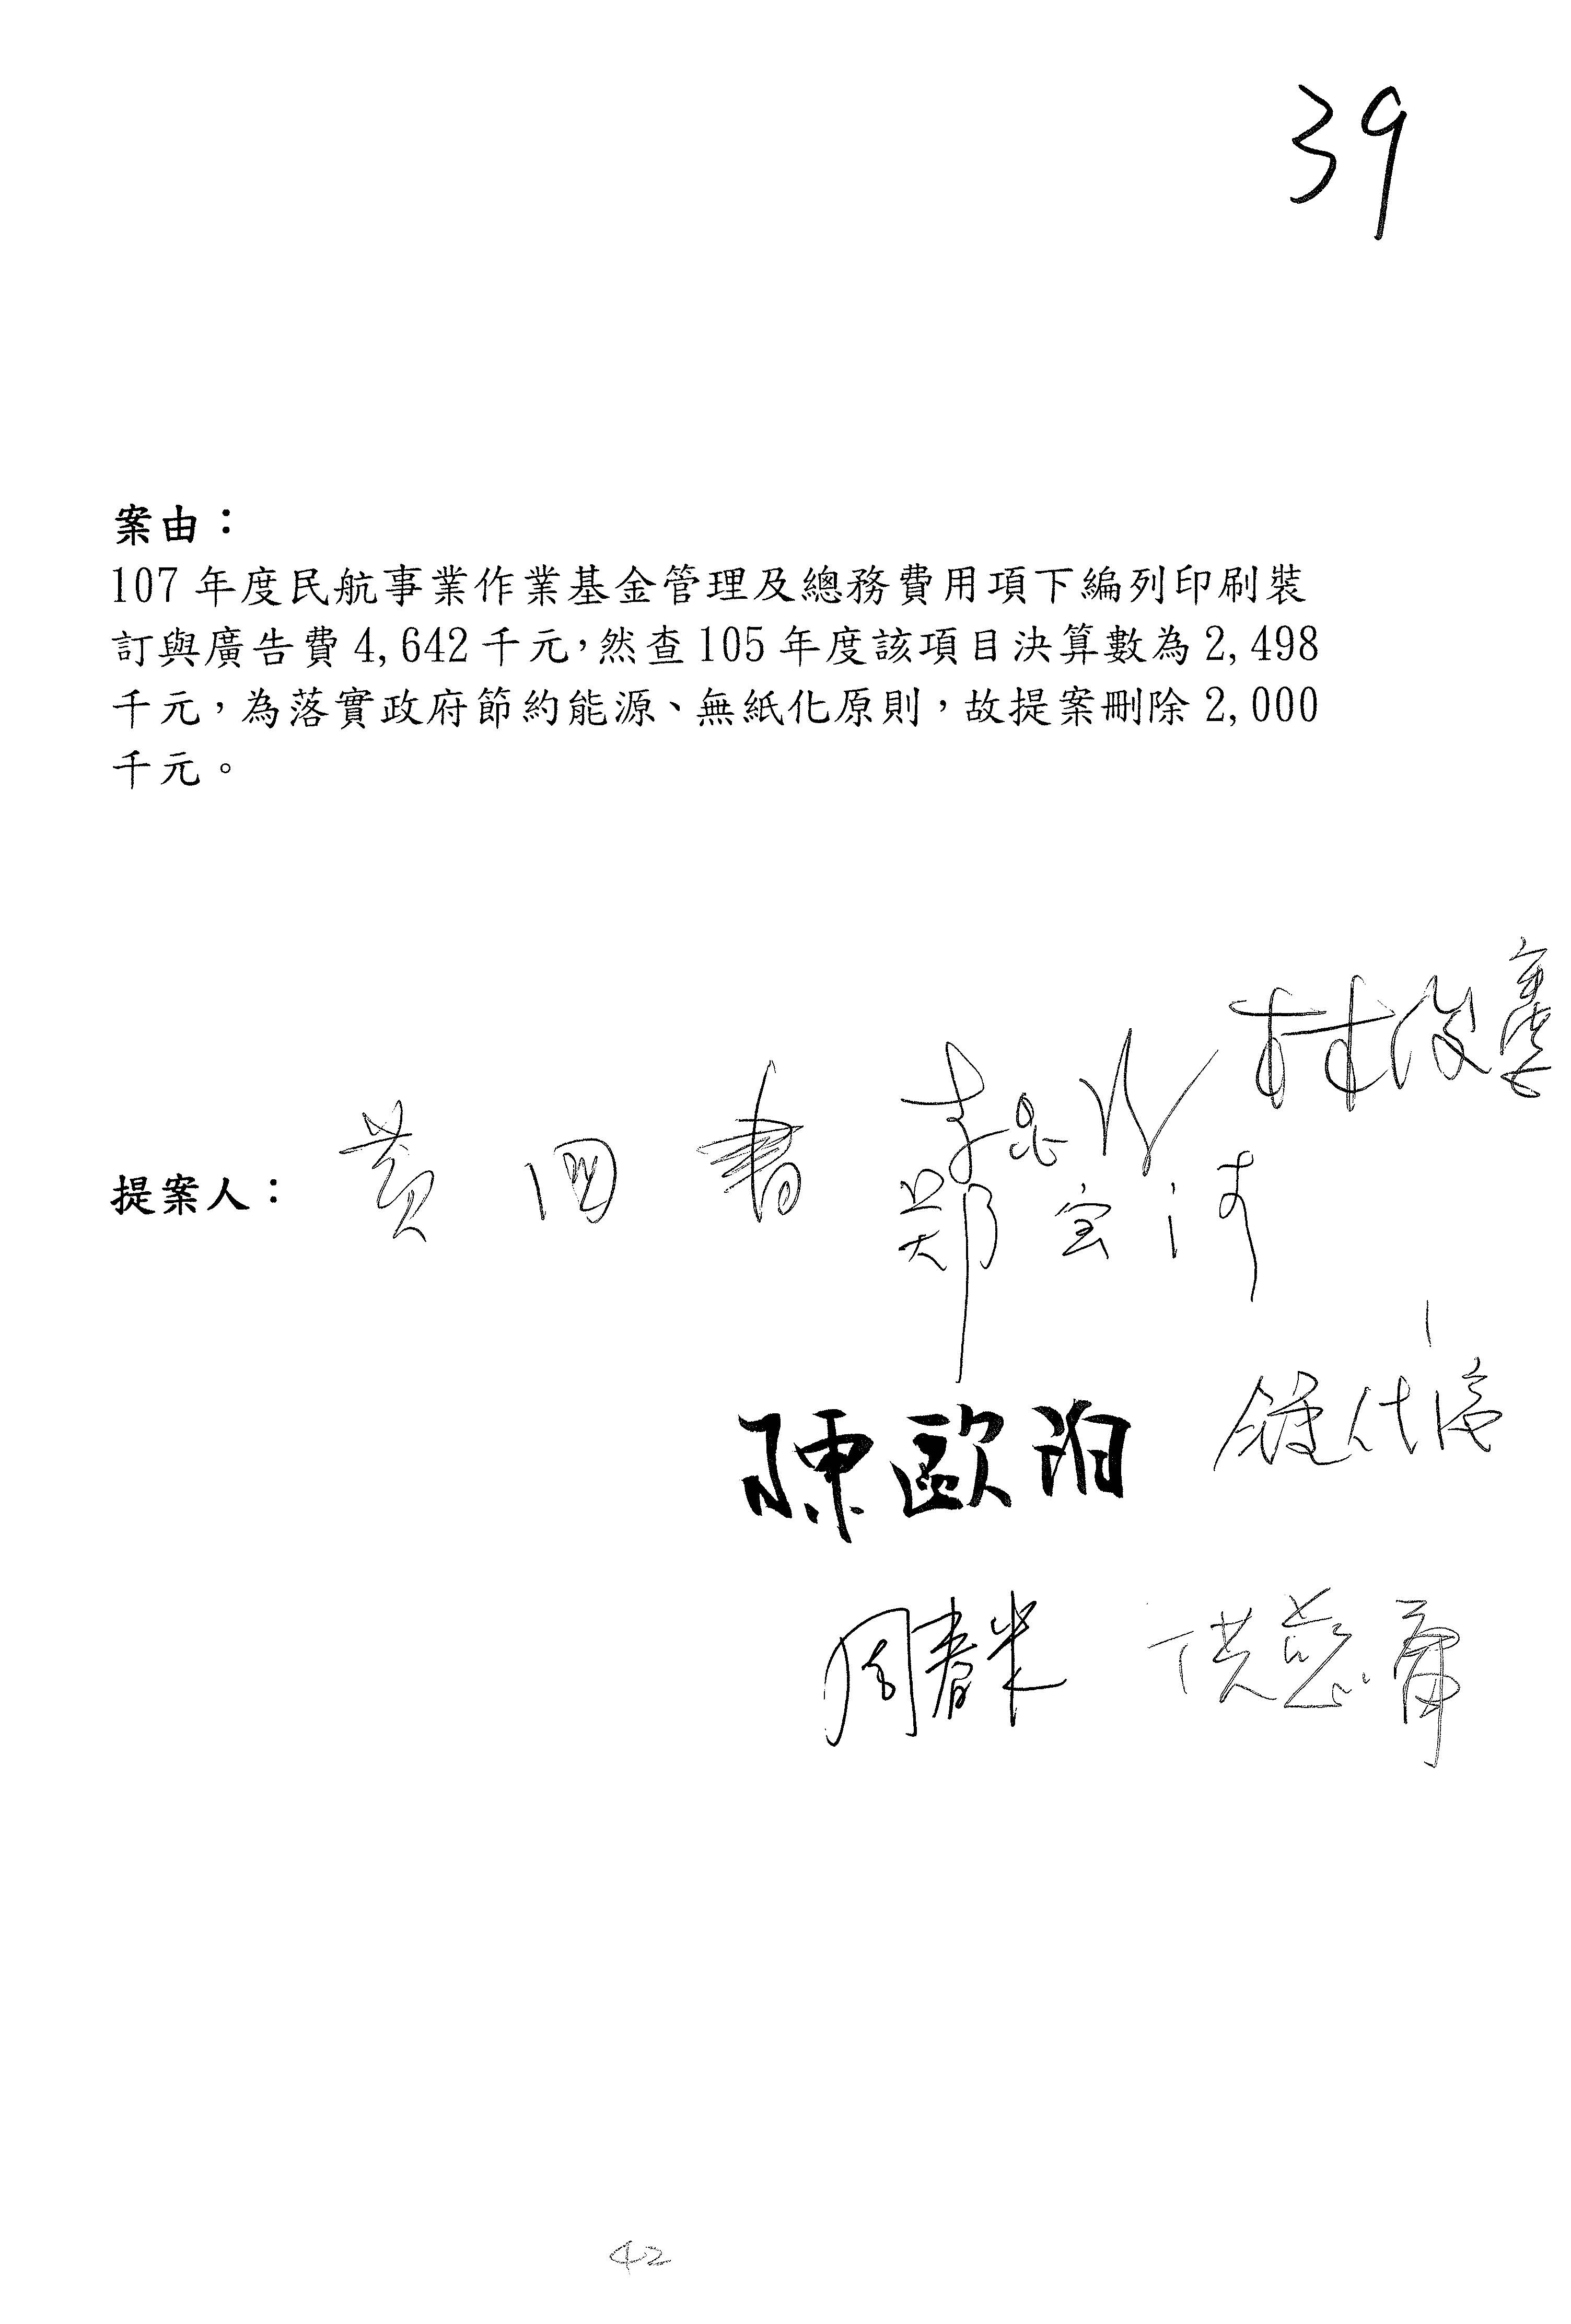 39
案由：
107 年度民航事業作業基金管理及總務費用項下編列印刷裝
訂與廣告費 4,642 千元，然查 105 年度該項目決算數為 2,498
千元，為落實政府節約能源、無紙化原則，故提案刪除 2,000
千元。
林俊憲
提案人： 黃國書 李昆澤
鄭宝清
陳歐珀
周春米 洪慈庸
42